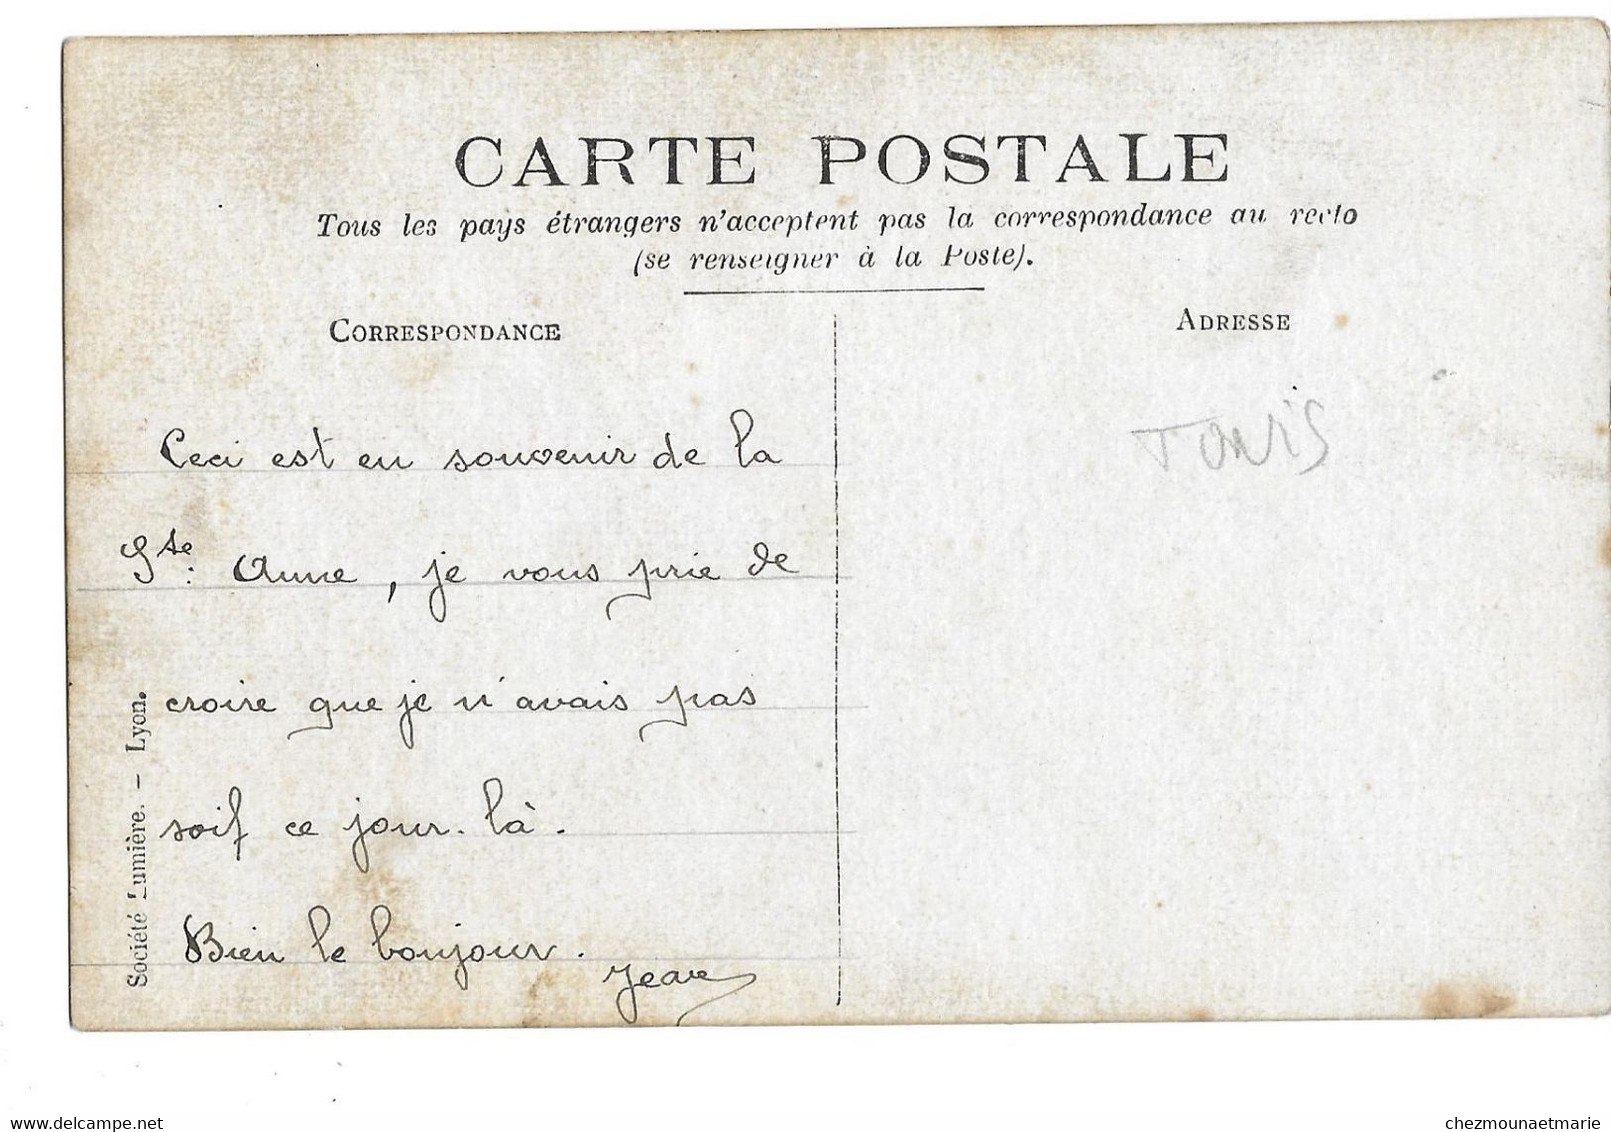 CARTE POSTALE
Tous les pays étrangers n'acceptent pas la correspondance au recto
(se renseigner à la Poste).
CORRESPONDANCE
Ceci est en souvenir de la
Ste: Anne, je vous prie de
croire que je n'avais pas
soif ce jour-là.
Bien le bonjour.
Jean
Société Lumière. — Lyon.
ADRESSE
TUNIS
www.delcampe.net
chezmounaetmarie